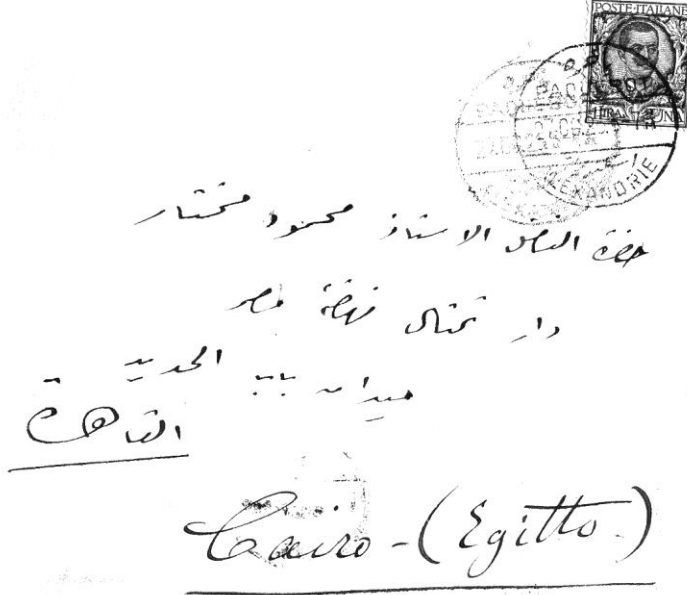 POSTE ITALIANE
LIRA UNA
PAQUEBOT
ALEXANDRIE
حضرة الفاضل الاستاذ محمود مختار
دار تمثال نهضة مصر
ميدان باب الحديد
القاهرة
Cairo - (Egitto)